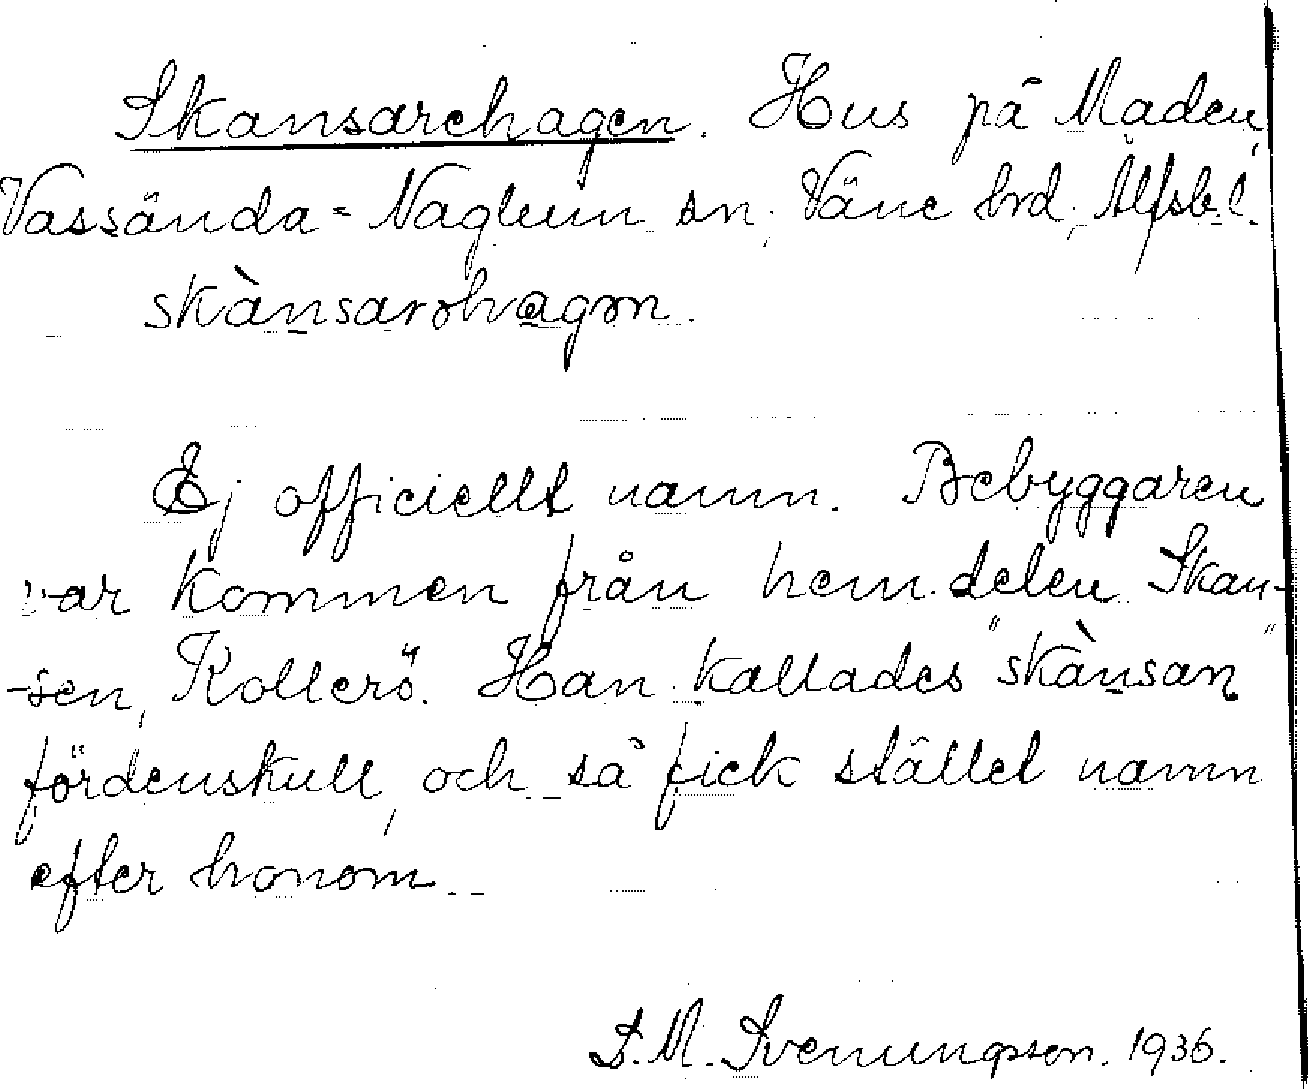 Skansarehagen. Hus på Maden,
Vassända-Naglum sn, Väne hrd, Älfsb. l.
skànsarəhagən.
Ej officiellt namn. Bebyggaren
var kommen från hem. delen Skan-
-sen, Rollerö. Han kallades "skànsan"
fördenskull, och så fick stället namn
efter honom.
S. M. Svenungsson. 1936.